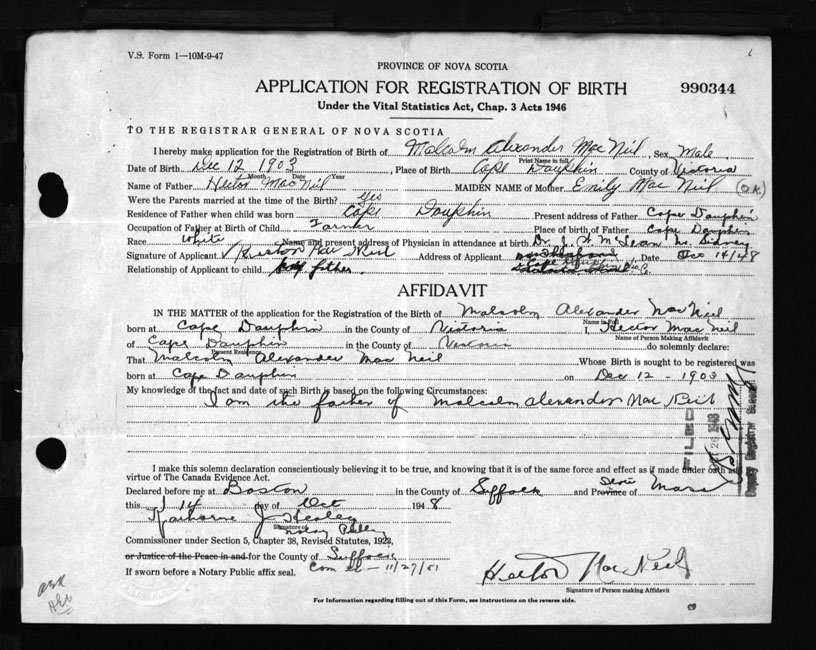 V.S. Form 1—10M-9-47
PROVINCE OF NOVA SCOTIA
APPLICATION FOR REGISTRATION OF BIRTH 990344
Under the Vital Statistics Act, Chap. 3 Acts 1946
TO THE REGISTRAR GENERAL OF NOVA SCOTIA
I hereby make application for the Registration of Birth of Malcolm Alexander Mac Neil, Sex Male
Print Name in full
Date of Birth Dec 12 1903, Place of Birth Cape Dauphin County of Victoria
Month Date Year
Name of Father Hector MacNeil MAIDEN NAME of Mother Emily Mac Neil (O.K.)
Were the Parents married at the time of the Birth? Yes
Residence of Father when child was born Cape Dauphin Present address of Father Cape Dauphin
Occupation of Father at Birth of Child Farmer Place of Birth of Father Cape Dauphin
Race White Name and present address of Physician in attendance at birth Dr. J. A. McLean No. Sidney
Signature of Applicant Hector Mac Neil Address of Applicant Date Oct 14/48
Relationship of Applicant to child father.
AFFIDAVIT
IN THE MATTER of the application for the Registration of the Birth of Malcolm Alexander Mac Neil
Name in Full
born at Cape Dauphin in the County of Victoria I, Hector Mac Neil
Name of Person Making Affidavit
of Cape Dauphin in the County of Victoria do solemnly declare:
Present Residence
That Malcolm Alexander Mac Neil Whose Birth is sought to be registered was
born at Cape Dauphin on Dec 12 - 1903
My knowledge of the fact and date of such Birth is based on the following Circumstances:
I am the father of Malcolm Alexander Mac Neil
FILED
Deputy Registrar General
I make this solemn declaration conscientiously believing it to be true, and knowing that it is of the same force and effect as if made under oath and
virtue of The Canada Evidence Act.
Declared before me at Boston in the County of Suffolk and Province of Mass
this 14 day of Oct 1948
Katharine J Healey
Signature of
Notary Public
Commissioner under Section 5, Chapter 38, Revised Statutes, 1923,
or Justice of the Peace in and for the County of Suffolk
If sworn before a Notary Public affix seal. Com - 11/27/51
Hector Mac Neil
Signature of Person making Affidavit
For Information regarding filling out of this Form, see instructions on the reverse side.